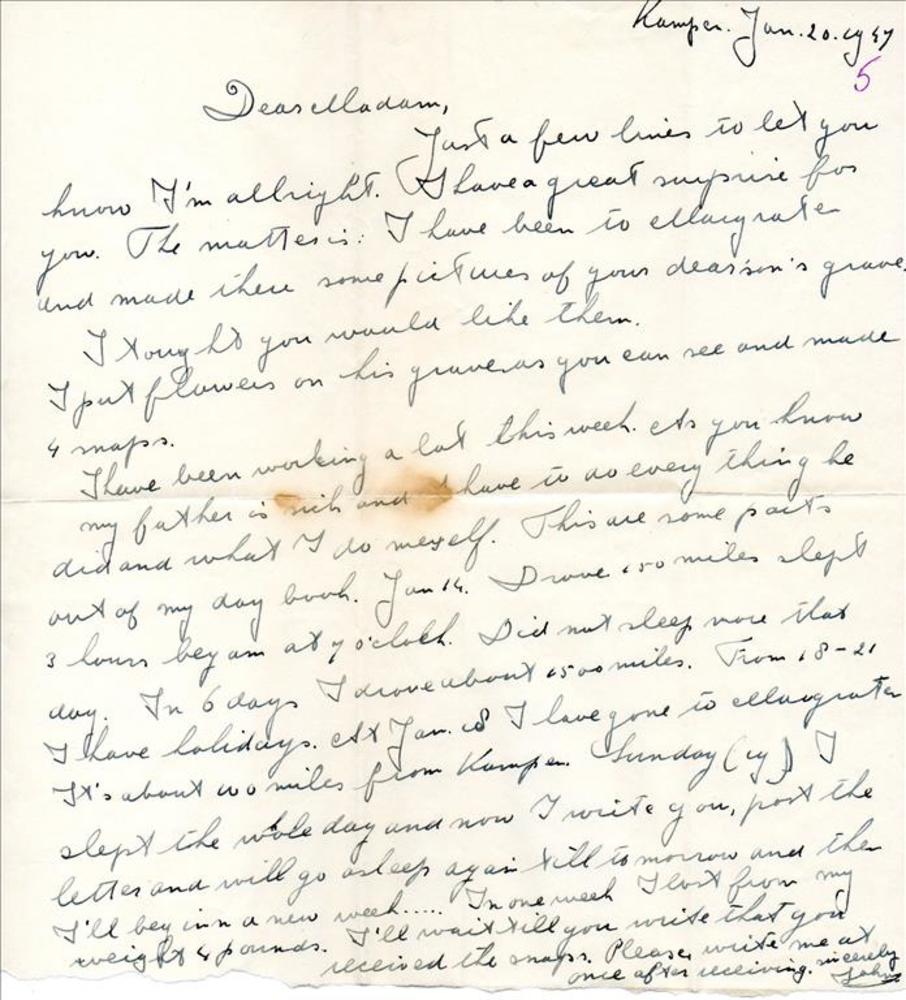 Kampen. Jan. 20. 1947
5
Dear Madam,
Just a few lines to let you
know I'm allright. I have a great surprise for
you. The matter is: I have been to Margraten
and made there some pictures of your dear son's grave.
I tought you would like them.
I put flowers on his grave as you can see and made
4 snaps.
I have been working a lot this week. As you know
my father is sick and I have to do every thing he
did and what I do meself. This are some parts
out of my day book. Jan 14. Drove 150 miles slept
3 hours began at 7 o'clock. Did not sleep more that
day. In 6 days I drove about 1500 miles. From 18-21
I have holidays. At Jan. 18 I have gone to Margraten
It's about 100 miles from Kampen. Sunday (19) I
slept the whole day and now I write you, post the
letter and will go asleep again till to morrow and then
I'll beginn a new week..... In one week I lost from my
weight 4 pounds. I'll wait till you write that you
received the snaps. Please, write me at
once after receiving. sincerely
John